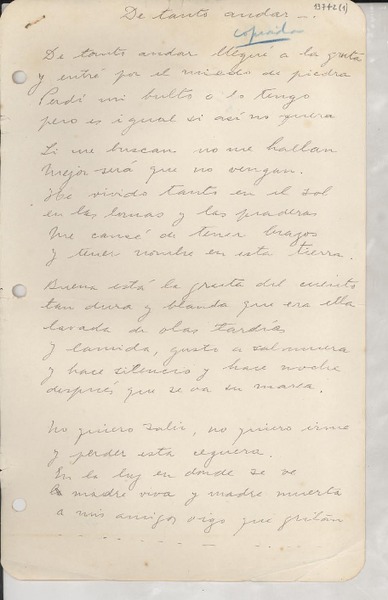 1374-2 (1)
De tanto andar ...
copiada
De tanto andar llegué a la gruta
y entré por el            de piedra
Perdí mi bulto o lo tengo
pero es igual si así no fuera
Si me buscan no me hallan
Mejor será que no vengan.
He vivido tanto en el sol
en las lomas y las praderas
Me cansé de tener brazos
y tener nombre en esta tierra.
Buena está la gruta del cuento
tan dura y blanda que era ella
lavada de olas tardías
y lamida, gusto a salmuera
y hace silencio y hace noche
después que se va su marea.
No quiero salir, no quiero irme
y perder esta ceguera.
En la luz en donde se ve
a madre viva y madre muerta
a mis amigos oigo que gritan